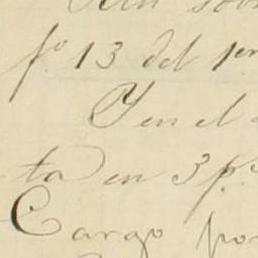 fº 13 del 1er
Y en el
ta en 3 pº
Cargo por